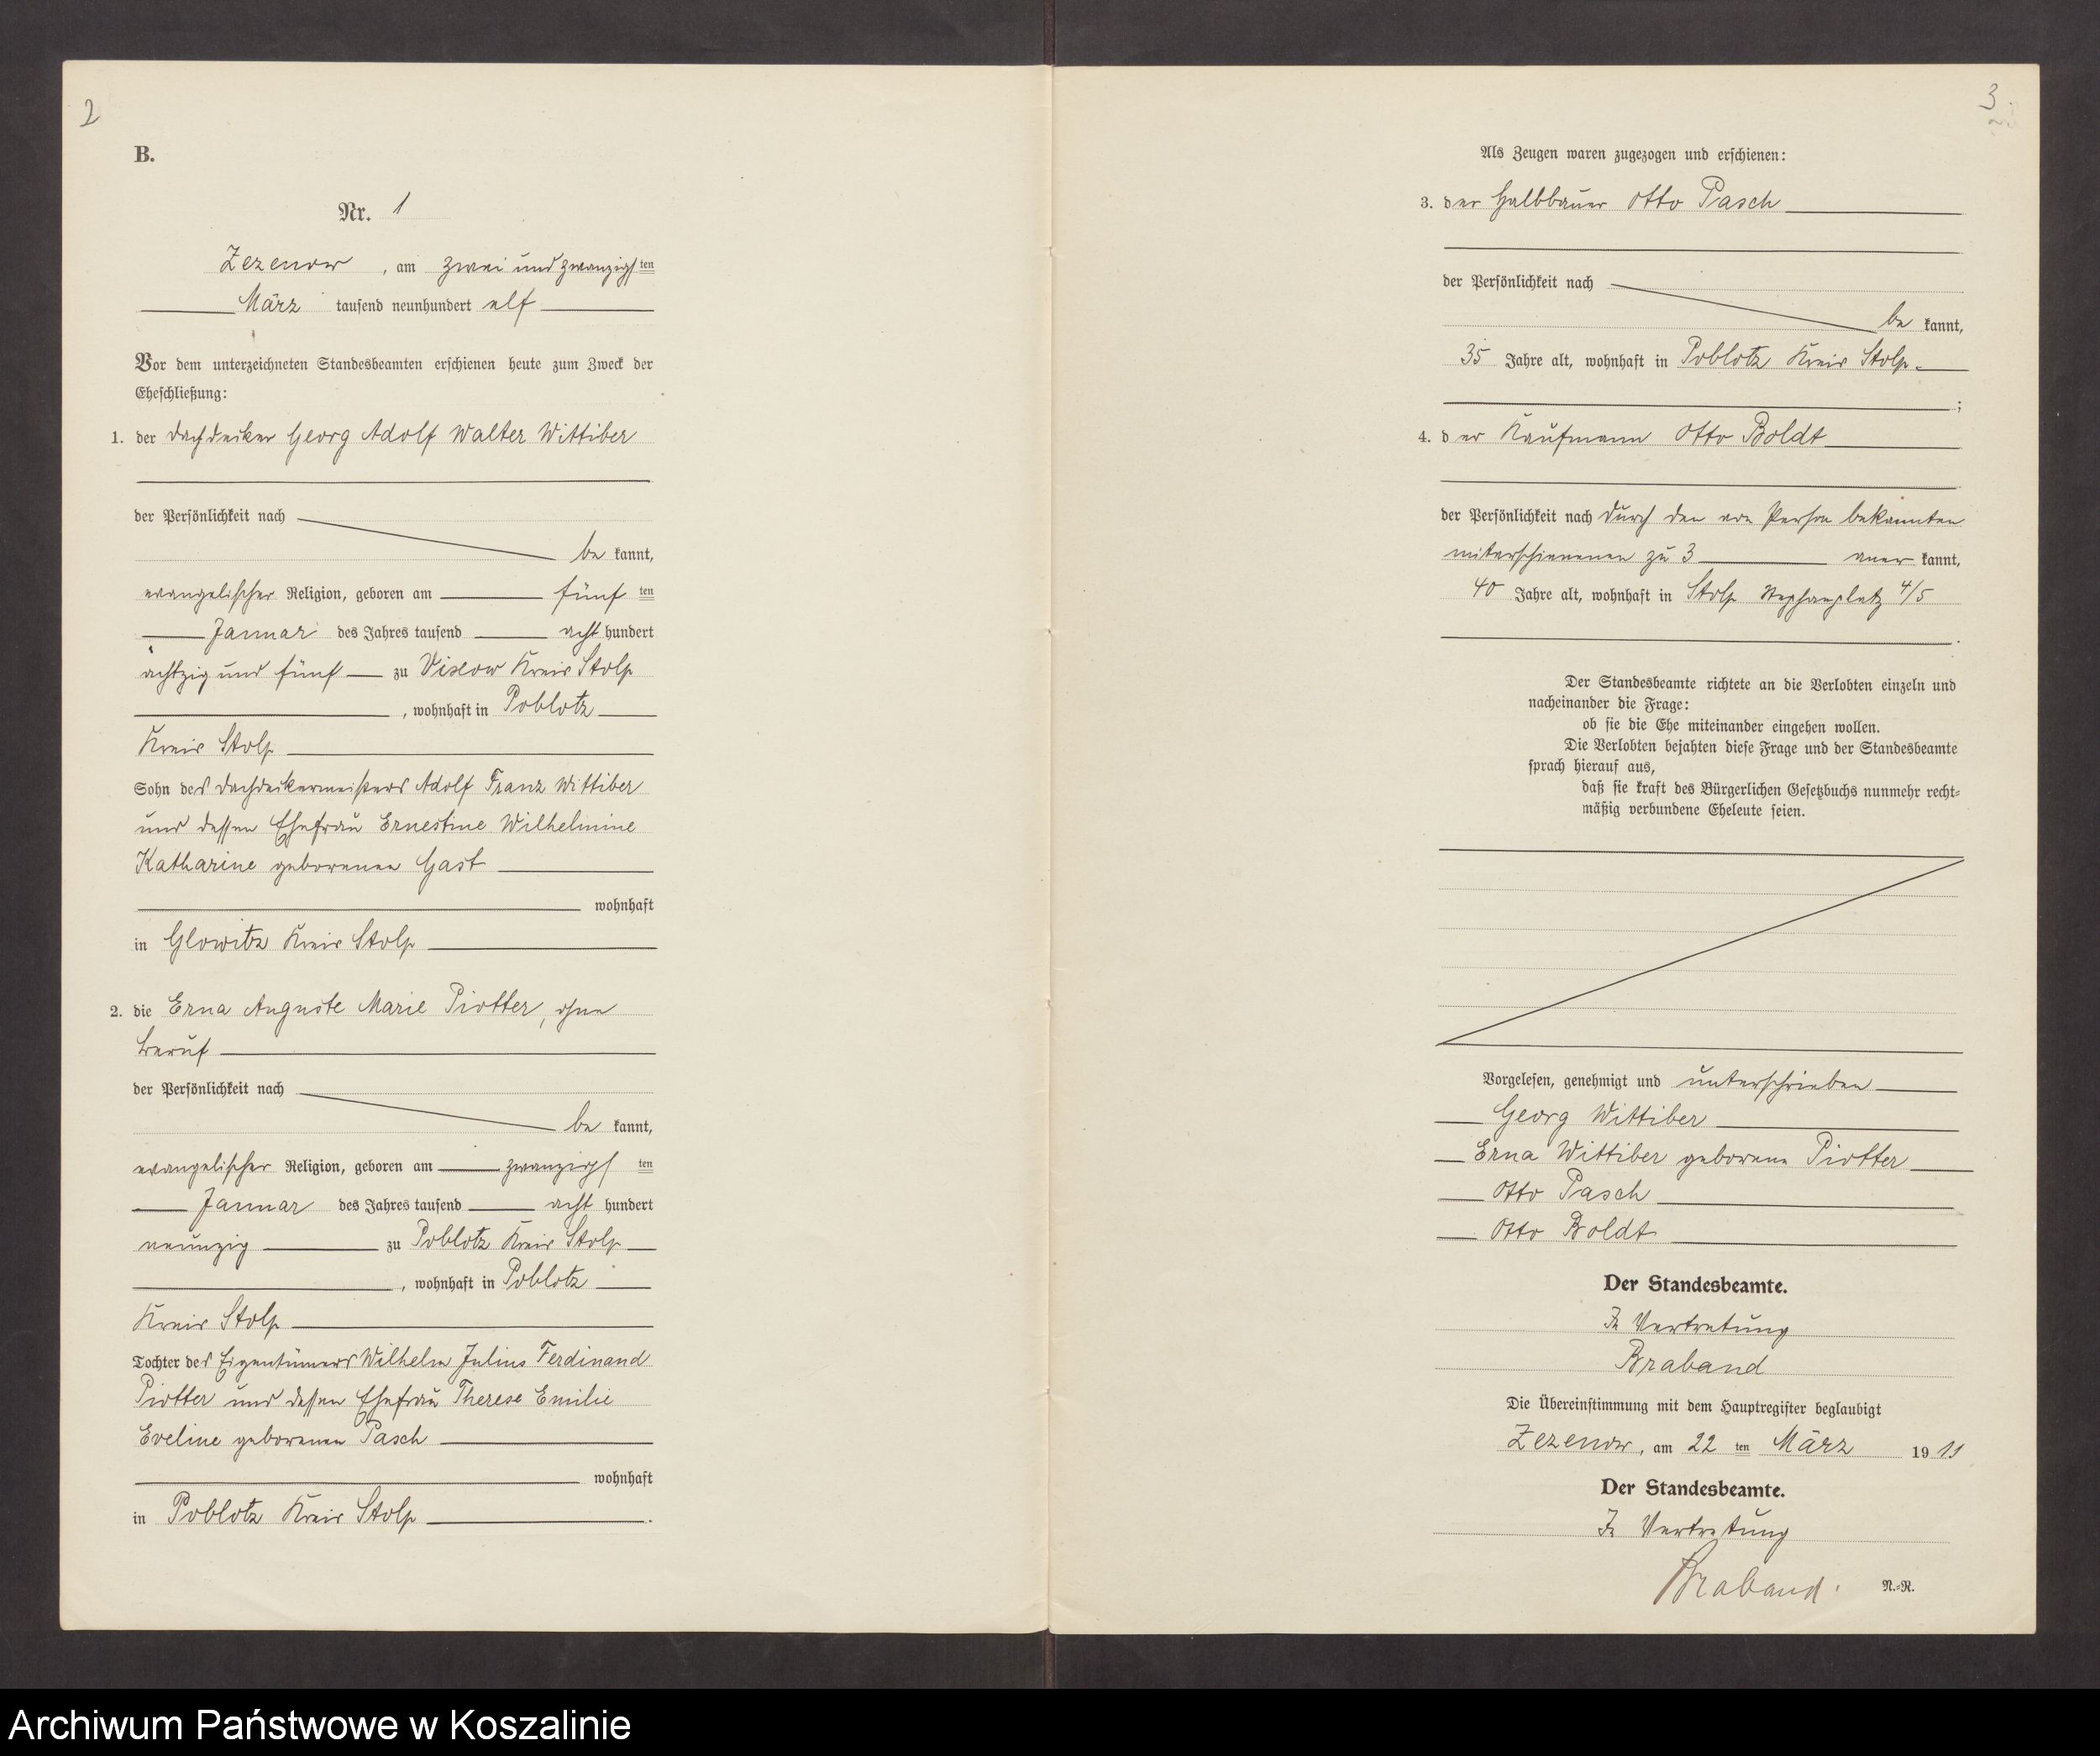 2
B.
Nr. 1
Zezenow, am zwei und zwanzigsten
März tausend neunhundert elf
Vor dem unterzeichneten Standesbeamten erschienen heute zum Zweck der
Eheschließung:
1. der Dachdecker Georg Adolf Walter Wittiber
der Persönlichkeit nach
be kannt,
evangelischer Religion, geboren am fünf ten
Januar des Jahres tausend acht hundert
achtzig und fünf zu Vixow Kreis Stolp
, wohnhaft in Poblotz
Kreis Stolp
Sohn des Dachdeckermeisters Adolf Franz Wittiber
und dessen Ehefrau Ernestine Wilhelmine
Katharine geborenen Gast
wohnhaft
in Glowitz Kreis Stolp
2. die Erna Auguste Marie Piotter, ohne
Beruf
der Persönlichkeit nach
be kannt,
evangelischer Religion, geboren am zwanzigs ten
Januar des Jahres tausend acht hundert
neunzig zu Poblotz Kreis Stolp
, wohnhaft in Poblotz
Kreis Stolp
Tochter des Eigentümers Wilhelm Julius Ferdinand
Piotter und dessen Ehefrau Therese Emilie
Eveline geborenen Pasch
wohnhaft
in Poblotz Kreis Stolp.
3
Als Zeugen waren zugezogen und erschienen:
3. der Halbbauer Otto Pasch
der Persönlichkeit nach
be kannt,
35 Jahre alt, wohnhaft in Poblotz Kreis Stolp
;
4. der Kaufmann Otto Boldt
der Persönlichkeit nach durch den von Person bekannten
miterschienenen zu 3 aner kannt,
40 Jahre alt, wohnhaft in Stolp Stephanplatz 4/5
.
Der Standesbeamte richtete an die Verlobten einzeln und
nacheinander die Frage:
ob sie die Ehe miteinander eingehen wollen.
Die Verlobten bejahten diese Frage und der Standesbeamte
sprach hierauf aus,
daß sie kraft des Bürgerlichen Gesetzbuchs nunmehr recht-
mäßig verbundene Eheleute seien.
Vorgelesen, genehmigt und unterschrieben
Georg Wittiber
Erna Wittiber geborene Piotter
Otto Pasch
Otto Boldt
Der Standesbeamte.
In Vertretung
Braband
Die Übereinstimmung mit dem Hauptregister beglaubigt
Zezenow, am 22 ten März 1911
Der Standesbeamte.
In Vertretung
Braband.
N.-R.
Archiwum Państwowe w Koszalinie